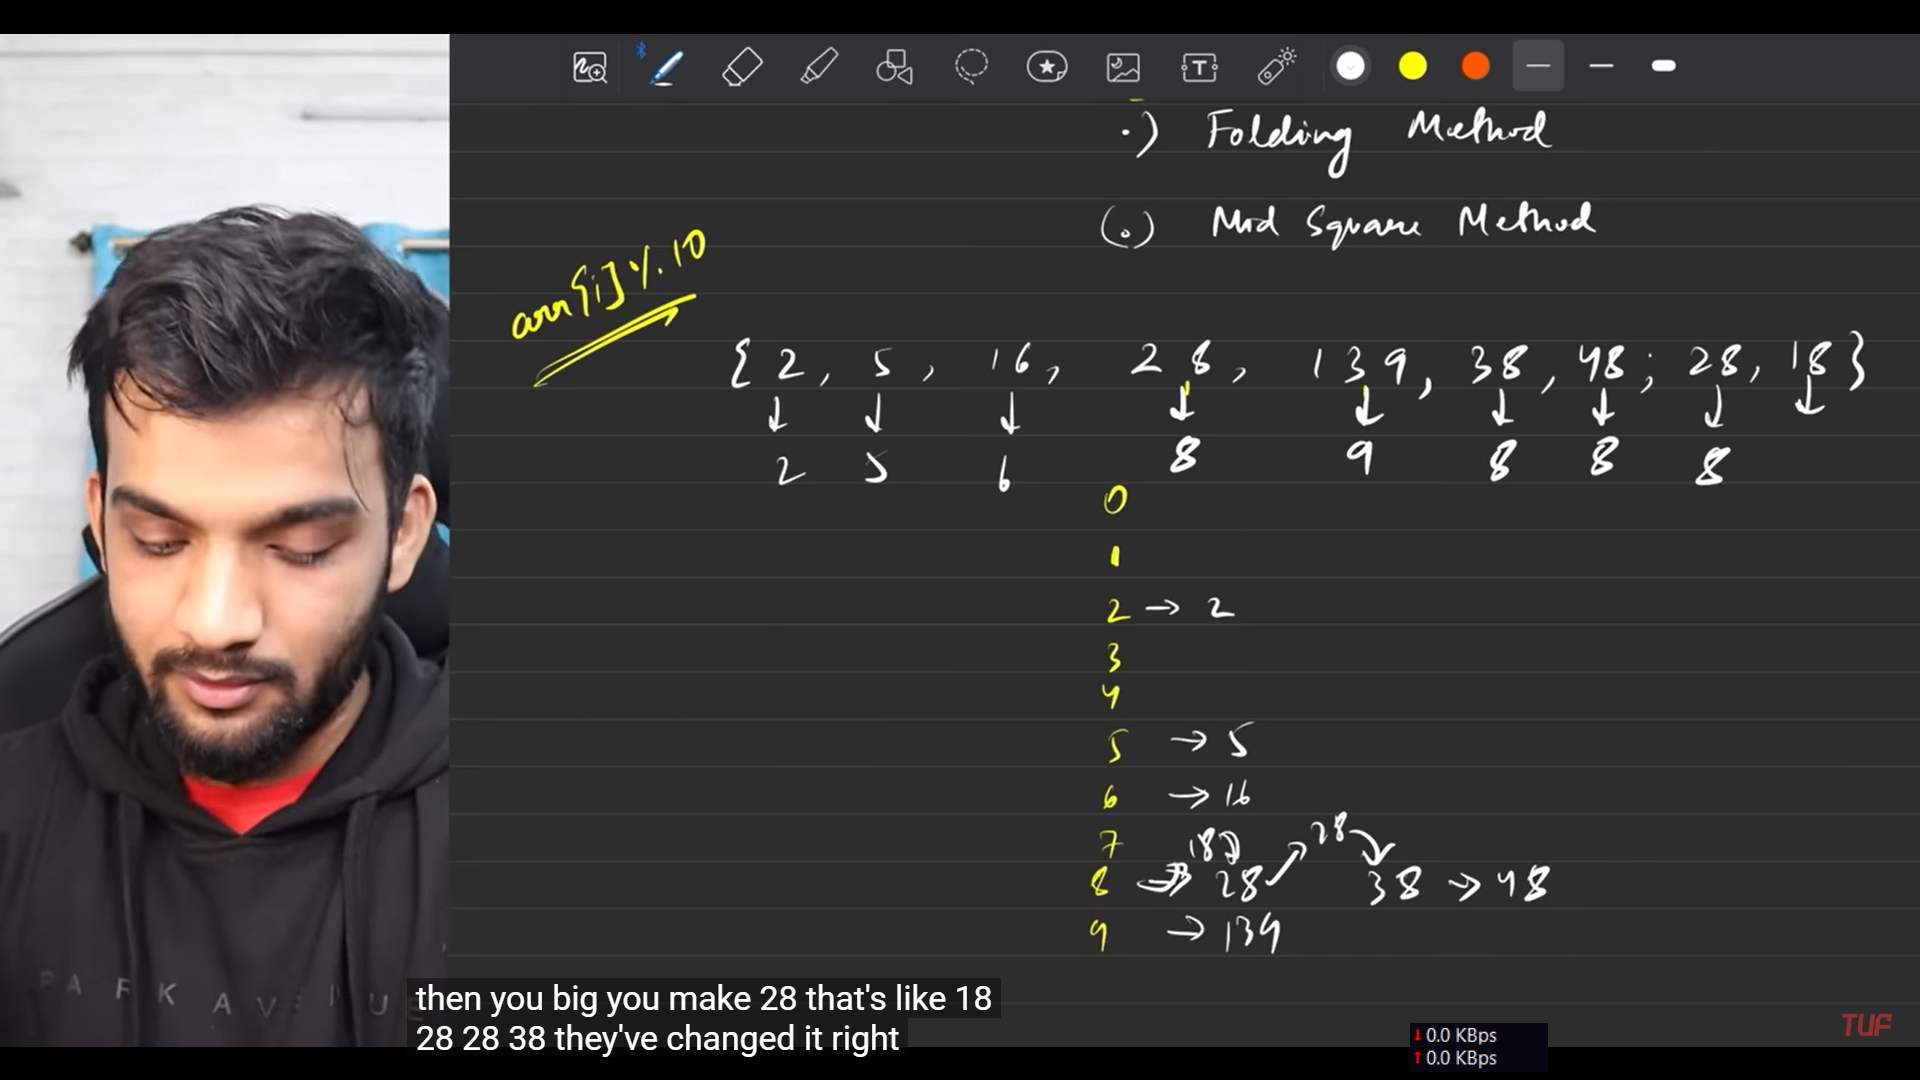 .) Folding Method
(.) Mid Square Method
arr[i] %. 10
{ 2, 5, 16, 28, 139, 38, 48, 28, 18 }
2 5 6 8 9 8 8 8
0
1
2 → 2
3
4
5 → 5
6 → 16
7
8 → 18 28 → 28 → 38 → 48
9 → 139
PARK AVENUE
then you big you make 28 that's like 18
28 28 38 they've changed it right
TUF
0.0 KBps
0.0 KBps